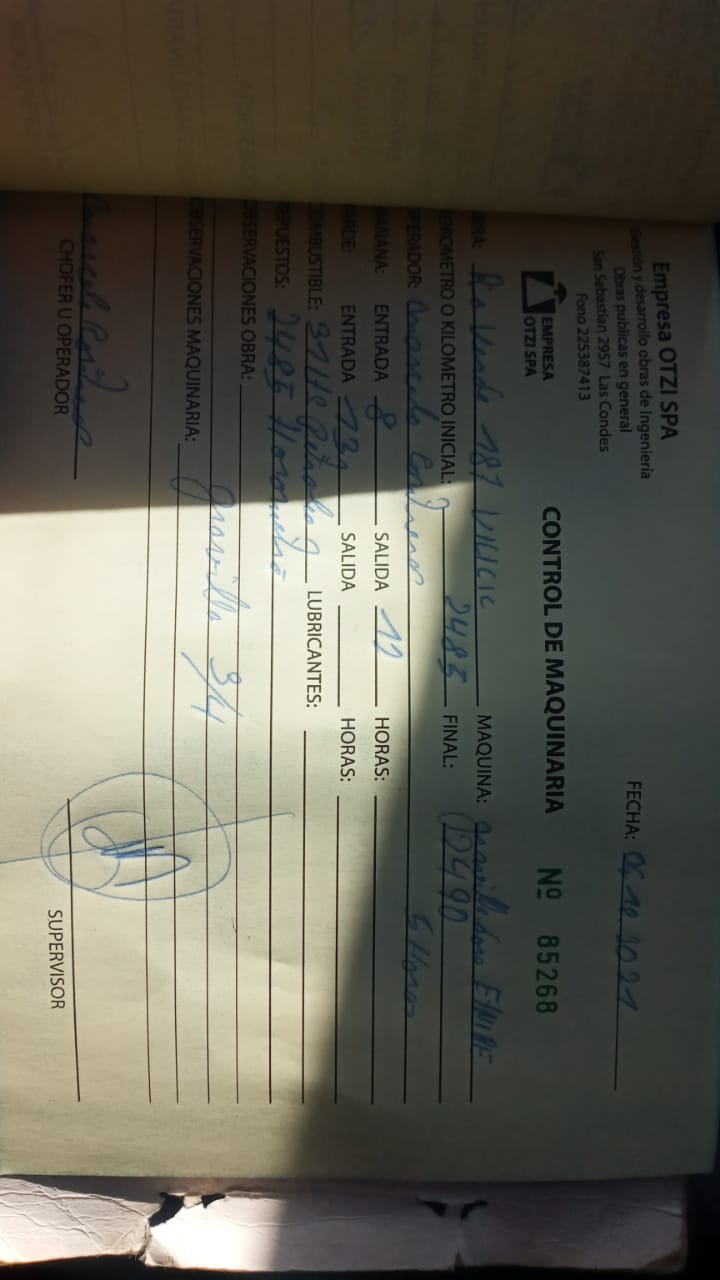 Empresa OTZI SPA
Gestión y desarrollo obras de Ingeniería
Obras publicas en general
San Sebastian 2957 Las Condes
Fono 225387413
FECHA: 06.12.2021
EMPRESA
OTZI SPA
CONTROL DE MAQUINARIA Nº 85268
BRA: Rio Verde 187 VILICIC MAQUINA: gravilladora
OROMETRO O KILOMETRO INICIAL: 2485 FINAL: 2490
OPERADOR: Marcelo Contreras 5 Horas
AÑANA: ENTRADA 8 SALIDA 12 HORAS:
ARDE: ENTRADA 13 SALIDA HORAS:
COMBUSTIBLE: Petroleo LUBRICANTES:
EPUESTOS: 2485 Horometro
OBSERVACIONES OBRA:
gravilla 3/4
OBSERVACIONES MAQUINARIA:
Marcelo Contreras
CHOFER U OPERADOR
SUPERVISOR